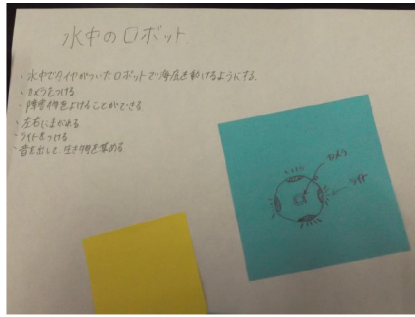 水中のロボット
・水中でタイヤがついたロボットで海底を動けるようにする.
・カメラをつける
・障害物をよけることができる
・左右にまがれる
・ライトをつける
・音を出して、生き物を集める
カメラ
ライト